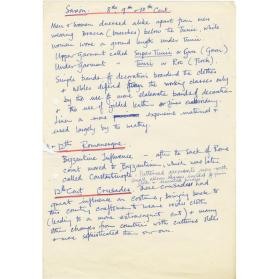 Saxon. 8th 9th - 10th Cent
Men + women dressed alike apart from men
wearing bracca (breeches) below the Tunic while
women wore a ground length under Tunic.
Upper Garment called Super Tunic or Gun (Gown)
Under-Garment - Tunic or Roc (Frock).
Simple bands of decoration branded the clothes
+ Nobles differed from the working classes only
by the use of more elaborate banded decoration
+ the use of gilded leather or fine embroidery.
Linen a more expensive material +
used largely by the wealthy.
12th Romanesque.
Byzantine Influence - after the Sack of Rome
court moved to Byzantium, which was later
called Constantinople
12th Cent Crusades these crusades had
great influence on costume, bringing back to
this country, craftsmen to weave
(leading to a more extravagant cut) + many
other changes from countries with cultures older
+ more sophisticated than our own.